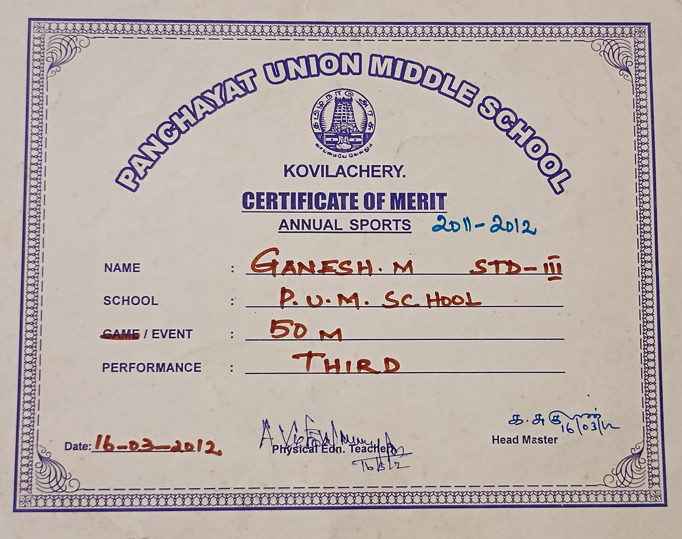 PANCHAYAT UNION MIDDLE SCHOOL
KOVILACHERY.
CERTIFICATE OF MERIT
ANNUAL SPORTS 2011-2012
NAME : GANESH. M STD-III
SCHOOL : P.U.M. SCHOOL
GAME / EVENT : 50 M
PERFORMANCE : THIRD
Date: 16-03-2012
Physical Edn. Teacher
16/3/12
16/03/12
Head Master